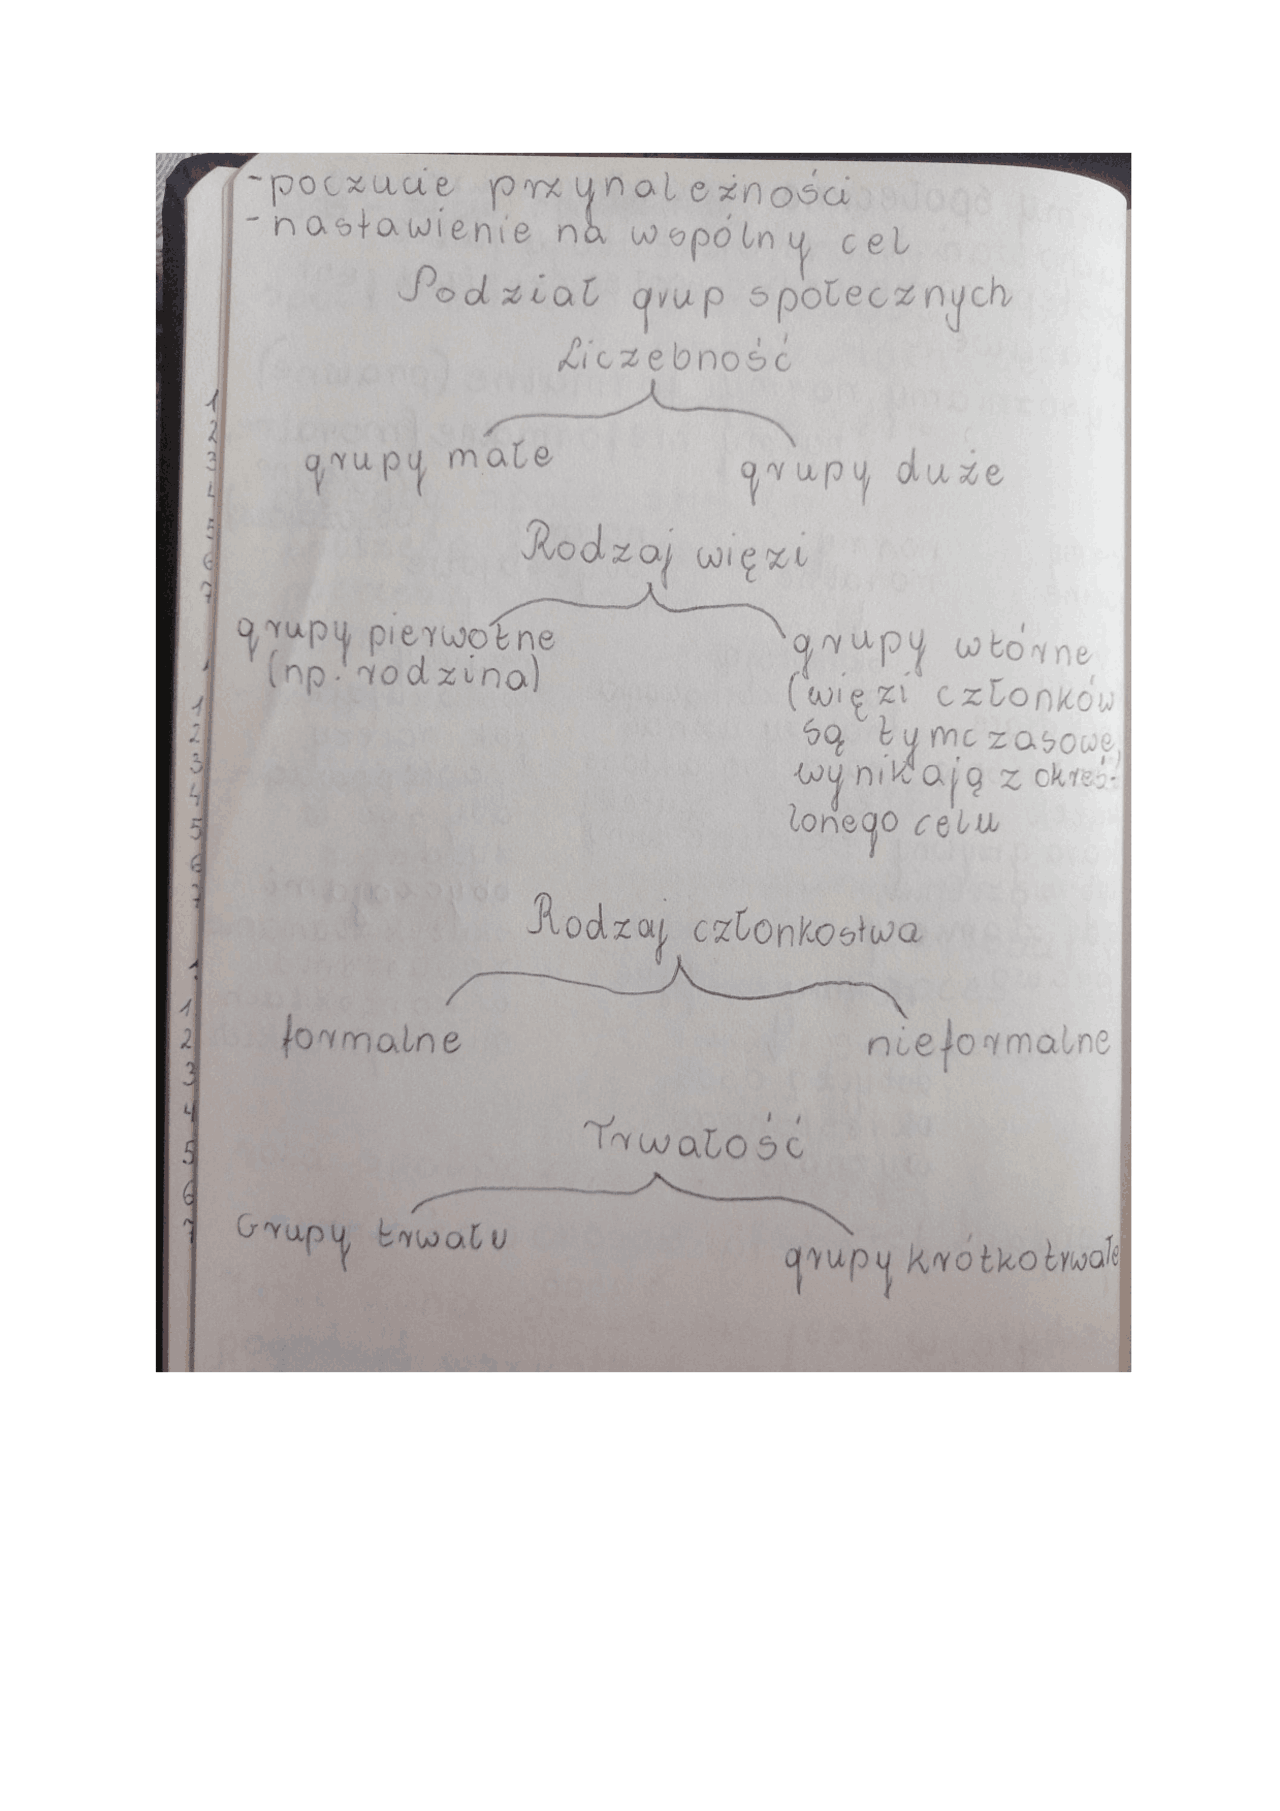 -poczucie przynależności
-nastawienie na wspólny cel
Podział grup społecznych
Liczebność
grupy małe grupy duże
Rodzaj więzi
grupy pierwotne grupy wtórne
(np. rodzina) (więzi członków
są tymczasowe,
wynikają z okreś-
lonego celu
Rodzaj członkostwa
formalne nieformalne
Trwałość
Grupy trwałe grupy krótkotrwałe
1
2
3
4
5
6
7
1
2
3
4
5
6
7
1
1
2
3
4
5
6
7